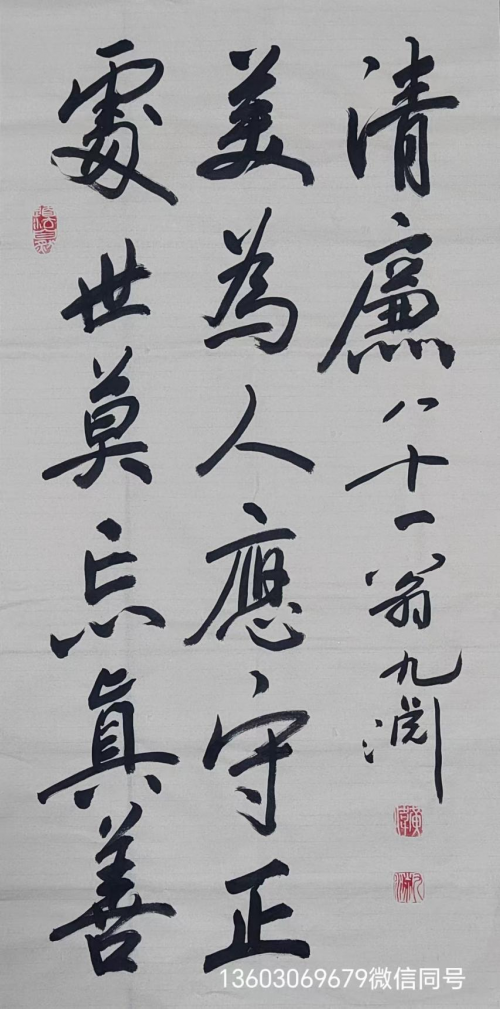 處世莫忘真善
美為人應守正
清廉 八十一翁九淵
13603069679微信同号